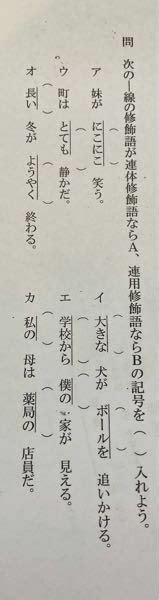 問 次の―線の修飾語が連体修飾語ならA、連用修飾語ならBの記号を（ ）入れよう。
ア 妹が にこにこ 笑う。
（ ）
イ 大きな 犬が ボールを 追いかける。
（ ） （ ）
ウ 町は とても 静かだ。
（ ）
エ 学校から 僕の 家が 見える。
（ ） （ ）
オ 長い 冬が ようやく 終わる。
（ ） （ ）
カ 私の 母は 薬局の 店員だ。
（ ） （ ）